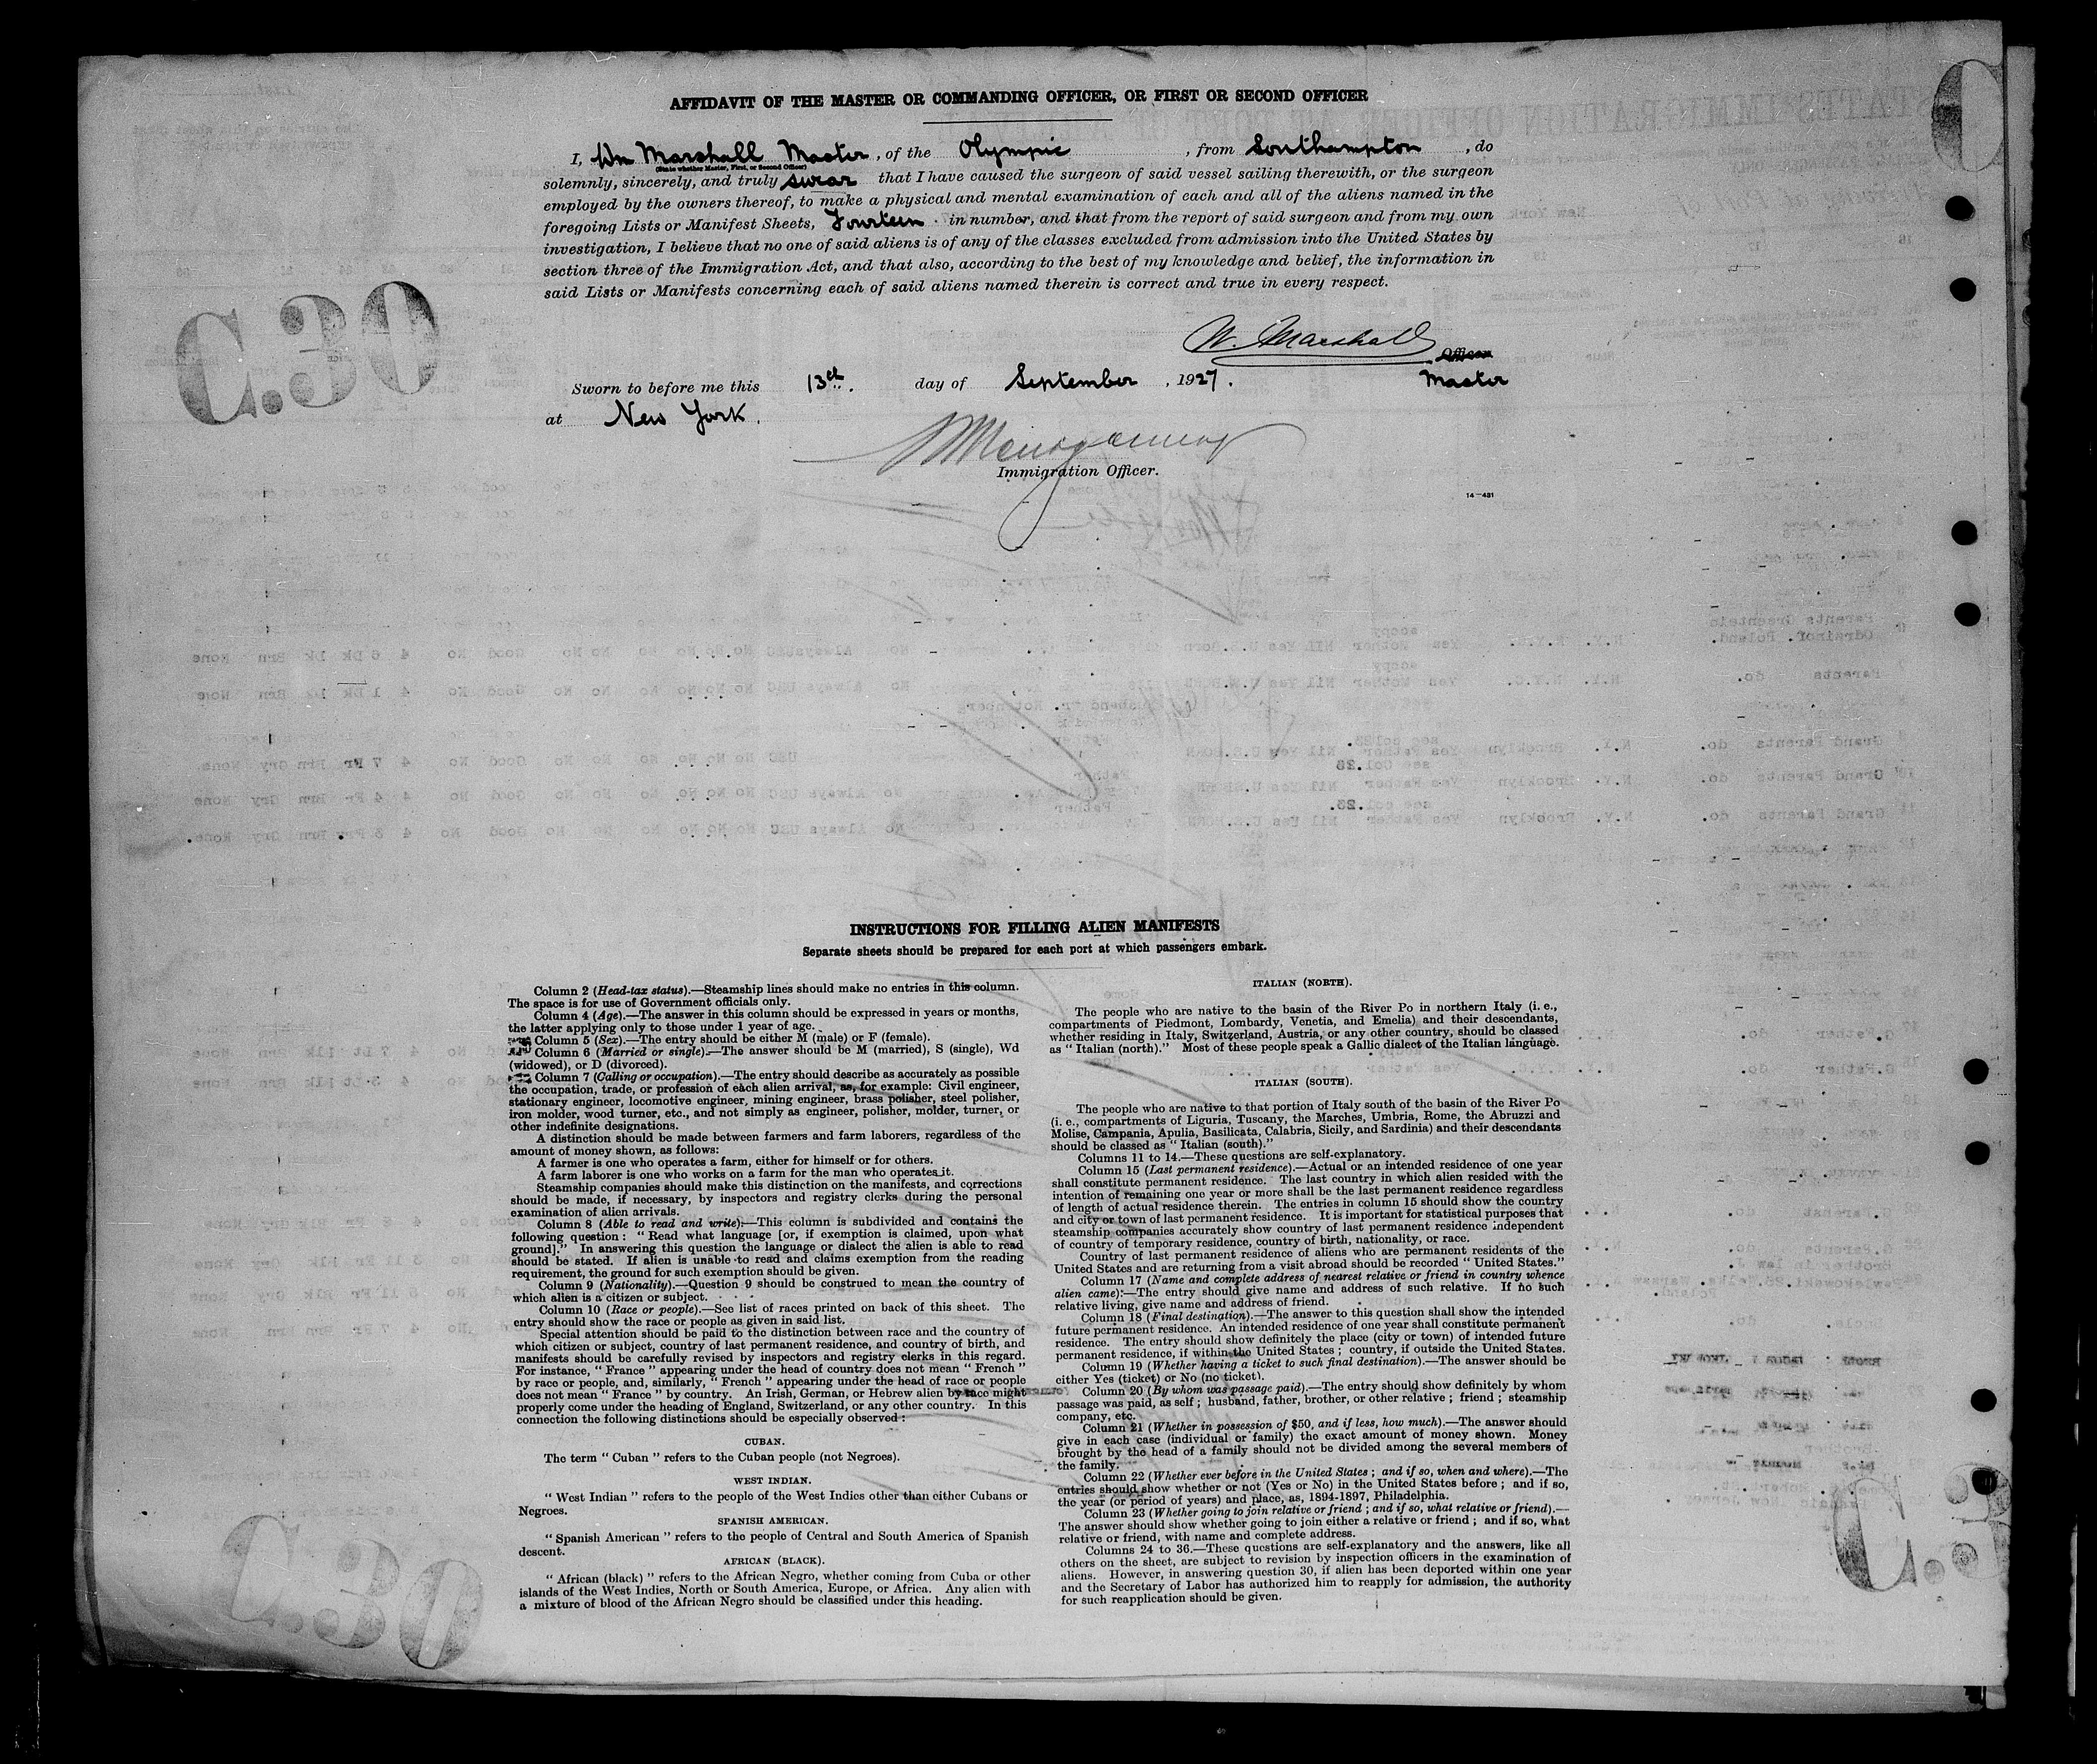 AFFIDAVIT OF THE MASTER OR COMMANDING OFFICER, OR FIRST OR SECOND OFFICER
I, Wm Marshall Master, of the Olympic, from Southampton, do
(State whether Master, First, or Second Officer)
solemnly, sincerely, and truly swear that I have caused the surgeon of said vessel sailing therewith, or the surgeon
employed by the owners thereof, to make a physical and mental examination of each and all of the aliens named in the
foregoing Lists or Manifest Sheets, Fourteen in number, and that from the report of said surgeon and from my own
investigation, I believe that no one of said aliens is of any of the classes excluded from admission into the United States by
section three of the Immigration Act, and that also, according to the best of my knowledge and belief, the information in
said Lists or Manifests concerning each of said aliens named therein is correct and true in every respect.
C.30
W. Marshall
Officer
Sworn to before me this 13th. day of September, 1927. Master
at New York.
Immigration Officer.
14—431
INSTRUCTIONS FOR FILLING ALIEN MANIFESTS
Separate sheets should be prepared for each port at which passengers embark.
Column 2 (Head-tax status).—Steamship lines should make no entries in this column.
The space is for use of Government officials only.
Column 4 (Age).—The answer in this column should be expressed in years or months,
the latter applying only to those under 1 year of age.
Column 5 (Sex).—The entry should be either M (male) or F (female).
Column 6 (Married or single).—The answer should be M (married), S (single), Wd
(widowed), or D (divorced).
Column 7 (Calling or occupation).—The entry should describe as accurately as possible
the occupation, trade, or profession of each alien arrival, as, for example: Civil engineer,
stationary engineer, locomotive engineer, mining engineer, brass polisher, steel polisher,
iron molder, wood turner, etc., and not simply as engineer, polisher, molder, turner, or
other indefinite designations.
A distinction should be made between farmers and farm laborers, regardless of the
amount of money shown, as follows:
A farmer is one who operates a farm, either for himself or for others.
A farm laborer is one who works on a farm for the man who operates it.
Steamship companies should make this distinction on the manifests, and corrections
should be made, if necessary, by inspectors and registry clerks during the personal
examination of alien arrivals.
Column 8 (Able to read and write).—This column is subdivided and contains the
following question: "Read what language [or, if exemption is claimed, upon what
ground]." In answering this question the language or dialect the alien is able to read
should be stated. If alien is unable to read and claims exemption from the reading
requirement, the ground for such exemption should be given.
Column 9 (Nationality).—Question 9 should be construed to mean the country of
which alien is a citizen or subject.
Column 10 (Race or people).—See list of races printed on back of this sheet. The
entry should show the race or people as given in said list.
Special attention should be paid to the distinction between race and the country of
which citizen or subject, country of last permanent residence, and country of birth, and
manifests should be carefully revised by inspectors and registry clerks in this regard.
For instance, "France" appearing under the head of country does not mean "French"
by race or people, and, similarly, "French" appearing under the head of race or people
does not mean "France" by country. An Irish, German, or Hebrew alien by race might
properly come under the heading of England, Switzerland, or any other country. In this
connection the following distinctions should be especially observed:
CUBAN.
The term "Cuban" refers to the Cuban people (not Negroes).
WEST INDIAN.
"West Indian" refers to the people of the West Indies other than either Cubans or
Negroes.
SPANISH AMERICAN.
"Spanish American" refers to the people of Central and South America of Spanish
descent.
AFRICAN (BLACK).
"African (black)" refers to the African Negro, whether coming from Cuba or other
islands of the West Indies, North or South America, Europe, or Africa. Any alien with
a mixture of blood of the African Negro should be classified under this heading.
ITALIAN (NORTH).
The people who are native to the basin of the River Po in northern Italy (i. e.,
compartments of Piedmont, Lombardy, Venetia, and Emelia) and their descendants,
whether residing in Italy, Switzerland, Austria, or any other country, should be classed
as "Italian (north)." Most of these people speak a Gallic dialect of the Italian language.
ITALIAN (SOUTH).
The people who are native to that portion of Italy south of the basin of the River Po
(i. e., compartments of Liguria, Tuscany, the Marches, Umbria, Rome, the Abruzzi and
Molise, Campania, Apulia, Basilicata, Calabria, Sicily, and Sardinia) and their descendants
should be classed as "Italian (south)."
Columns 11 to 14.—These questions are self-explanatory.
Column 15 (Last permanent residence).—Actual or an intended residence of one year
shall constitute permanent residence. The last country in which alien resided with the
intention of remaining one year or more shall be the last permanent residence regardless
of length of actual residence therein. The entries in column 15 should show the country
and city or town of last permanent residence. It is important for statistical purposes that
steamship companies accurately show country of last permanent residence independent
of country of temporary residence, country of birth, nationality, or race.
Country of last permanent residence of aliens who are permanent residents of the
United States and are returning from a visit abroad should be recorded "United States."
Column 17 (Name and complete address of nearest relative or friend in country whence
alien came):—The entry should give name and address of such relative. If no such
relative living, give name and address of friend.
Column 18 (Final destination).—The answer to this question shall show the intended
future permanent residence. An intended residence of one year shall constitute permanent
residence. The entry should show definitely the place (city or town) of intended future
permanent residence, if within the United States; country, if outside the United States.
Column 19 (Whether having a ticket to such final destination).—The answer should be
either Yes (ticket) or No (no ticket).
Column 20 (By whom was passage paid).—The entry should show definitely by whom
passage was paid, as self; husband, father, brother, or other relative; friend; steamship
company, etc.
Column 21 (Whether in possession of $50, and if less, how much).—The answer should
give in each case (individual or family) the exact amount of money shown. Money
brought by the head of a family should not be divided among the several members of
the family.
Column 22 (Whether ever before in the United States; and if so, when and where).—The
entries should show whether or not (Yes or No) in the United States before; and if so,
the year (or period of years) and place, as, 1894-1897, Philadelphia.
Column 23 (Whether going to join relative or friend; and if so, what relative or friend).—
The answer should show whether going to join either a relative or friend; and if so, what
relative or friend, with name and complete address.
Columns 24 to 36.—These questions are self-explanatory and the answers, like all
others on the sheet, are subject to revision by inspection officers in the examination of
aliens. However, in answering question 30, if alien has been deported within one year
and the Secretary of Labor has authorized him to reapply for admission, the authority
for such reapplication should be given.
C.30